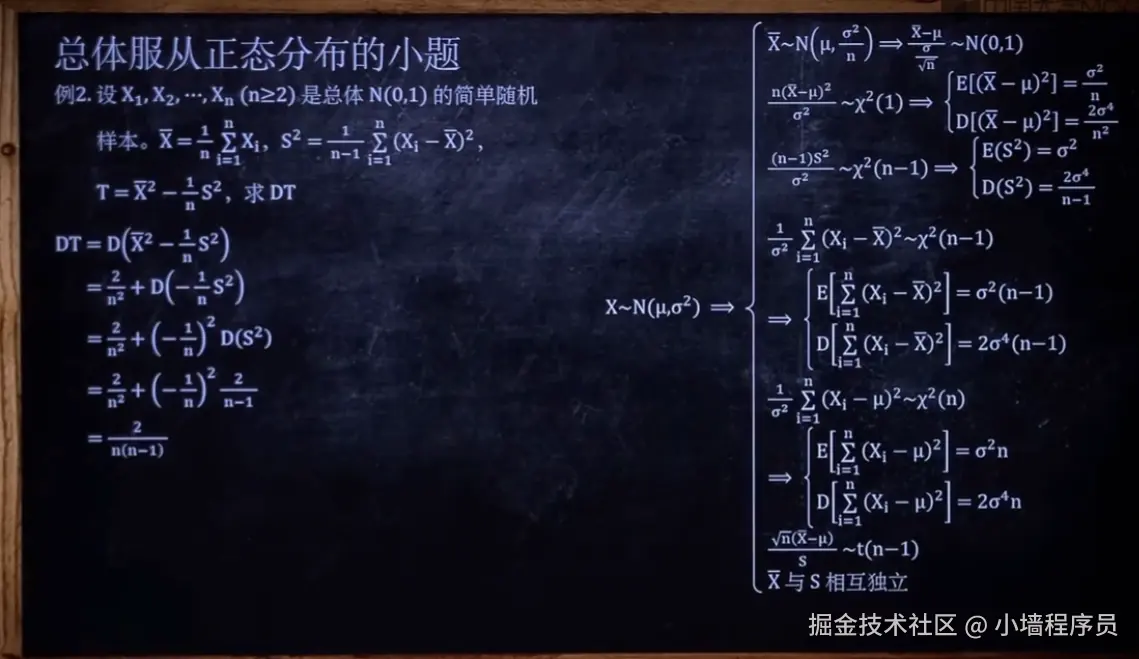 总体服从正态分布的小题
例2. 设 X₁, X₂, ⋯, Xₙ (n≥2) 是总体 N(0,1) 的简单随机
样本。X̅ = 1/n ∑ᵢ₌₁ⁿ Xᵢ, S² = 1/(n−1) ∑ᵢ₌₁ⁿ (Xᵢ − X̅)²,
T = X̅² − 1/n S², 求 DT
DT = D(X̅² − 1/n S²)
= 2/n² + D(−1/n S²)
= 2/n² + (−1/n)² D(S²)
= 2/n² + (−1/n)² 2/(n−1)
= 2/(n(n−1))
X~N(μ,σ²) ⟹
X̅~N(μ, σ²/n) ⟹ (X̅−μ)/(σ/√n) ~N(0,1)
n(X̅−μ)²/σ² ~χ²(1) ⟹ { E[(X̅ − μ)²] = σ²/n
D[(X̅ − μ)²] = 2σ⁴/n²
(n−1)S²/σ² ~χ²(n−1) ⟹ { E(S²) = σ²
D(S²) = 2σ⁴/(n−1)
1/σ² ∑ᵢ₌₁ⁿ (Xᵢ − X̅)²~χ²(n−1)
⟹ { E[∑ᵢ₌₁ⁿ (Xᵢ − X̅)²] = σ²(n−1)
D[∑ᵢ₌₁ⁿ (Xᵢ − X̅)²] = 2σ⁴(n−1)
1/σ² ∑ᵢ₌₁ⁿ (Xᵢ − μ)²~χ²(n)
⟹ { E[∑ᵢ₌₁ⁿ (Xᵢ − μ)²] = σ²n
D[∑ᵢ₌₁ⁿ (Xᵢ − μ)²] = 2σ⁴n
√n(X̅−μ)/S ~t(n−1)
X̅ 与 S 相互独立
掘金技术社区 @ 小墙程序员